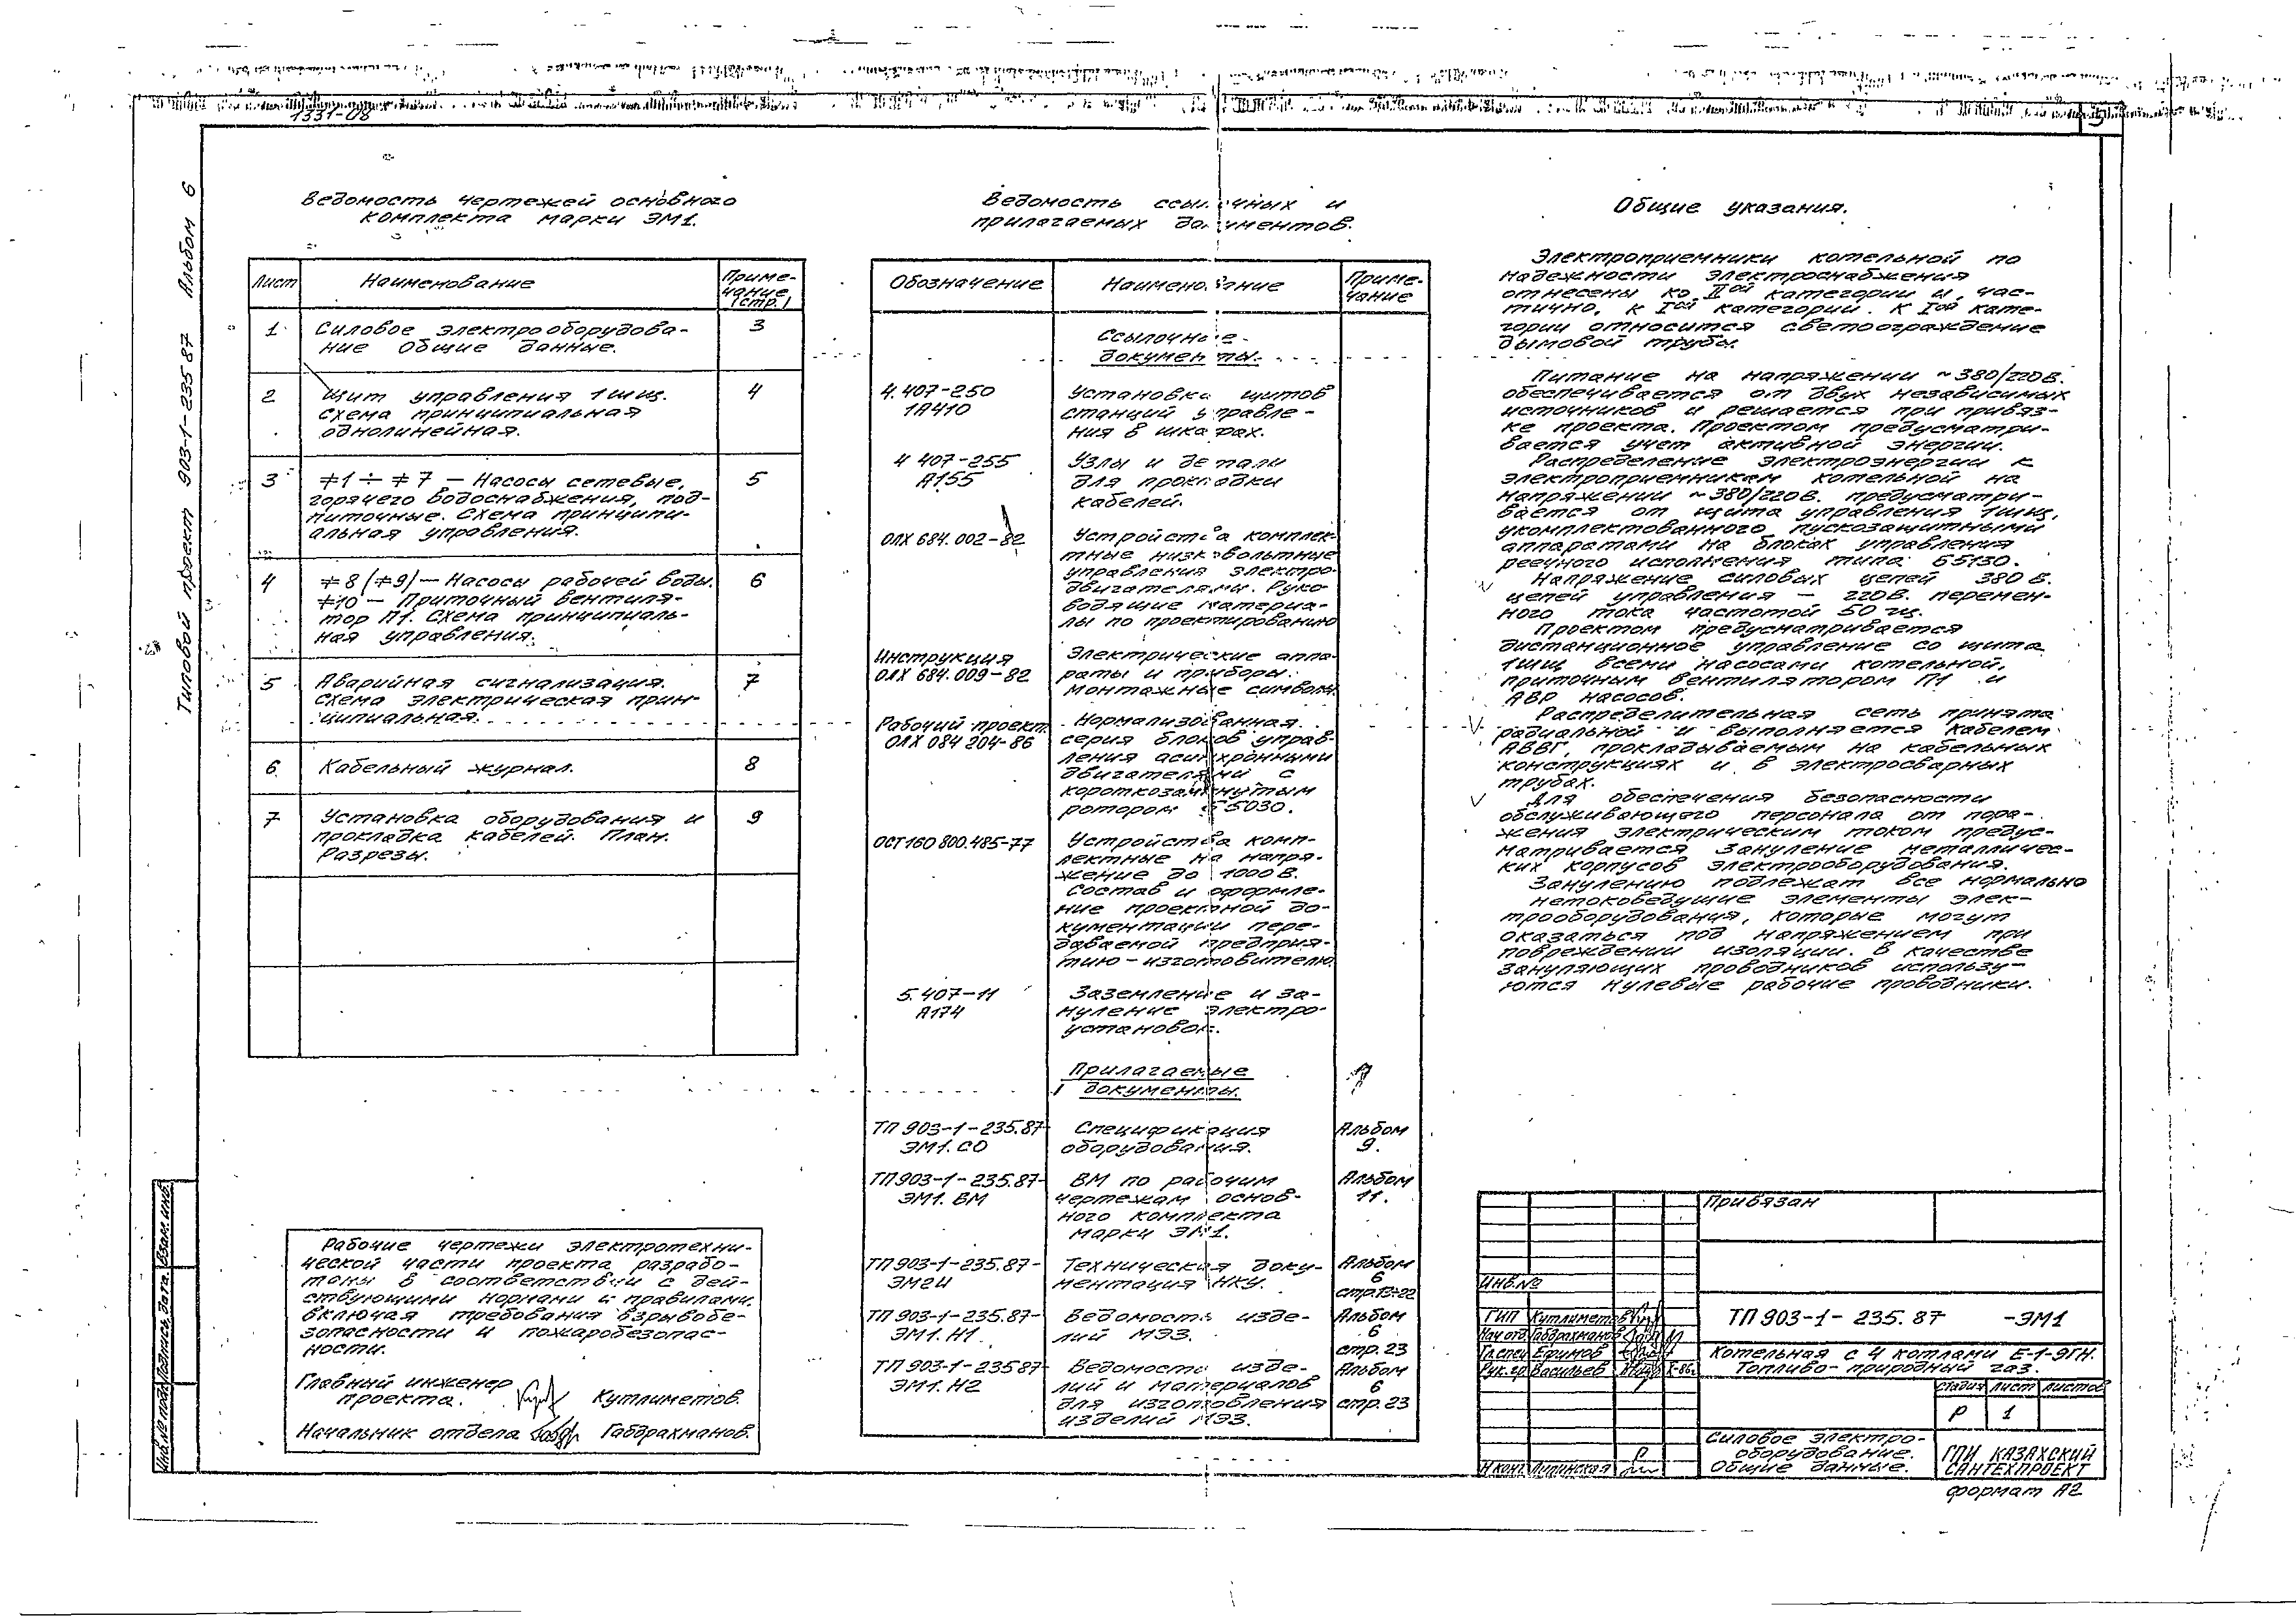 1331-08
3
Типовой проект 903-1-235 87 Альбом 6
Ведомость чертежей основного
комплекта марки ЭМ1.
Лист
Наименование
Приме-
чание
(стр.)
1
Силовое электрооборудова-
ние Общие данные.
3
2
Щит управления 1шщ.
Схема принципиальная
однолинейная.
4
3
≠1÷≠7 — Насосы сетевые,
горячего водоснабжения, под-
питочные. Схема принципи-
альная управления.
5
4
≠8(≠9)— Насосы рабочей воды.
≠10 — Приточный вентиля-
тор П1. Схема принципиаль-
ная управления.
6
5
Аварийная сигнализация.
Схема электрическая прин-
ципиальная.
7
6
Кабельный журнал.
8
7
Установка оборудования и
прокладка кабелей. План.
Разрезы.
9
Рабочие чертежи электротехни-
ческой части проекта разрабо-
таны в соответствии с дей-
ствующими нормами и правилами,
включая требования взрывобе-
зопасности и пожаробезопас-
ности.
Главный инженер
проекта. Кутлиметов.
Начальник отдела Габдрахманов.
Ведомость ссылочных и
прилагаемых документов.
Обозначение
Наименование
Приме-
чание
Ссылочные
документы.
4.407-250
1А410
Установка щитов
станций управле-
ния в шкафах.
4 407-255
А155
Узлы и детали
для прокладки
кабелей.
ОЛХ 684.002-82
Устройства комплек-
тные низковольтные
управления электро-
двигателями. Руко-
водящие материа-
лы по проектированию
Инструкция
ОЛХ 684.009-82
Электрические аппа-
раты и приборы.
Монтажные символы.
Рабочий проект
ОЛХ 084 204-86
Нормализованная
серия блоков управ-
ления асинхронными
двигателями с
короткозамкнутым
ротором Б5030.
ОСТ160 800.485-77
Устройства комп-
лектные на напря-
жение до 1000 В.
Состав и оформле-
ние проектной до-
кументации пере-
даваемой предприя-
тию-изготовителю.
5.407-11
А174
Заземление и за-
нуление электро-
установок.
Прилагаемые
документы.
ТП 903-1-235.87-
ЭМ1.СО
Спецификация
оборудования.
Альбом
9.
ТП903-1-235.87-
ЭМ1. ВМ
ВМ по рабочим
чертежам основ-
ного комплекта
марки ЭМ1.
Альбом
11.
ТП903-1-235.87-
ЭМ2И
Техническая доку-
ментация НКУ.
Альбом
6
стр.13÷22
ТП 903-1-235.87-
ЭМ1.Н1
Ведомость изде-
лий МЭЗ.
Альбом
6
стр.23
ТП 903-1-235 87-
ЭМ1.Н2
Ведомость изде-
лий и материалов
для изготовления
изделий МЭЗ.
Альбом
6
стр.23
Общие указания.
Электроприемники котельной по
надежности электроснабжения
отнесены ко IIой категории и, час-
тично, к Iой категории. К Iой кате-
гории относится светоограждение
дымовой трубы.
Питание на напряжении ~380/220 в.
обеспечивается от двух независимых
источников и решается при привяз-
ке проекта. Проектом предусматри-
вается учет активной энергии.
Распределение электроэнергии к
электроприемникам котельной на
напряжении ~380/220 в. предусматри-
вается от щита управления 1шщ,
укомплектованного пускозащитными
аппаратами на блоках управления
реечного исполнения типа Б5130.
Напряжение силовых цепей 380 в.
цепей управления — 220 в. перемен-
ного тока частотой 50 гц.
Проектом предусматривается
дистанционное управление со щита
1шщ всеми насосами котельной,
приточным вентилятором П1 и
АВР насосов.
Распределительная сеть принята
радиальной и выполняется кабелем
АВВГ, прокладываемым на кабельных
конструкциях и в электросварных
трубах.
Для обеспечения безопасности
обслуживающего персонала от пора-
жения электрическим током предус-
матривается зануление металличес-
ких корпусов электрооборудования.
Занулению подлежат все нормально
нетоковедущие элементы элек-
трооборудования, которые могут
оказаться под напряжением при
повреждении изоляции. В качестве
зануляющих проводников использу-
ются нулевые рабочие проводники.
Привязан
Инв.№
ГИП Кутлиметов
Нач отд Габдрахманов
Гл.спец Ефимов
Рук.гр. Васильев
Н конт Липинская
ТП 903-1-235.87 -ЭМ1
Котельная с 4 котлами Е-1-9ГН.
Топливо-природный газ.
Стадия Лист Листов
Р 1
Силовое электро-
оборудование.
Общие данные.
ГПИ КАЗАХСКИЙ
САНТЕХПРОЕКТ
формат А2
Инв.№ подл. Подпись, дата. Взам. инв.